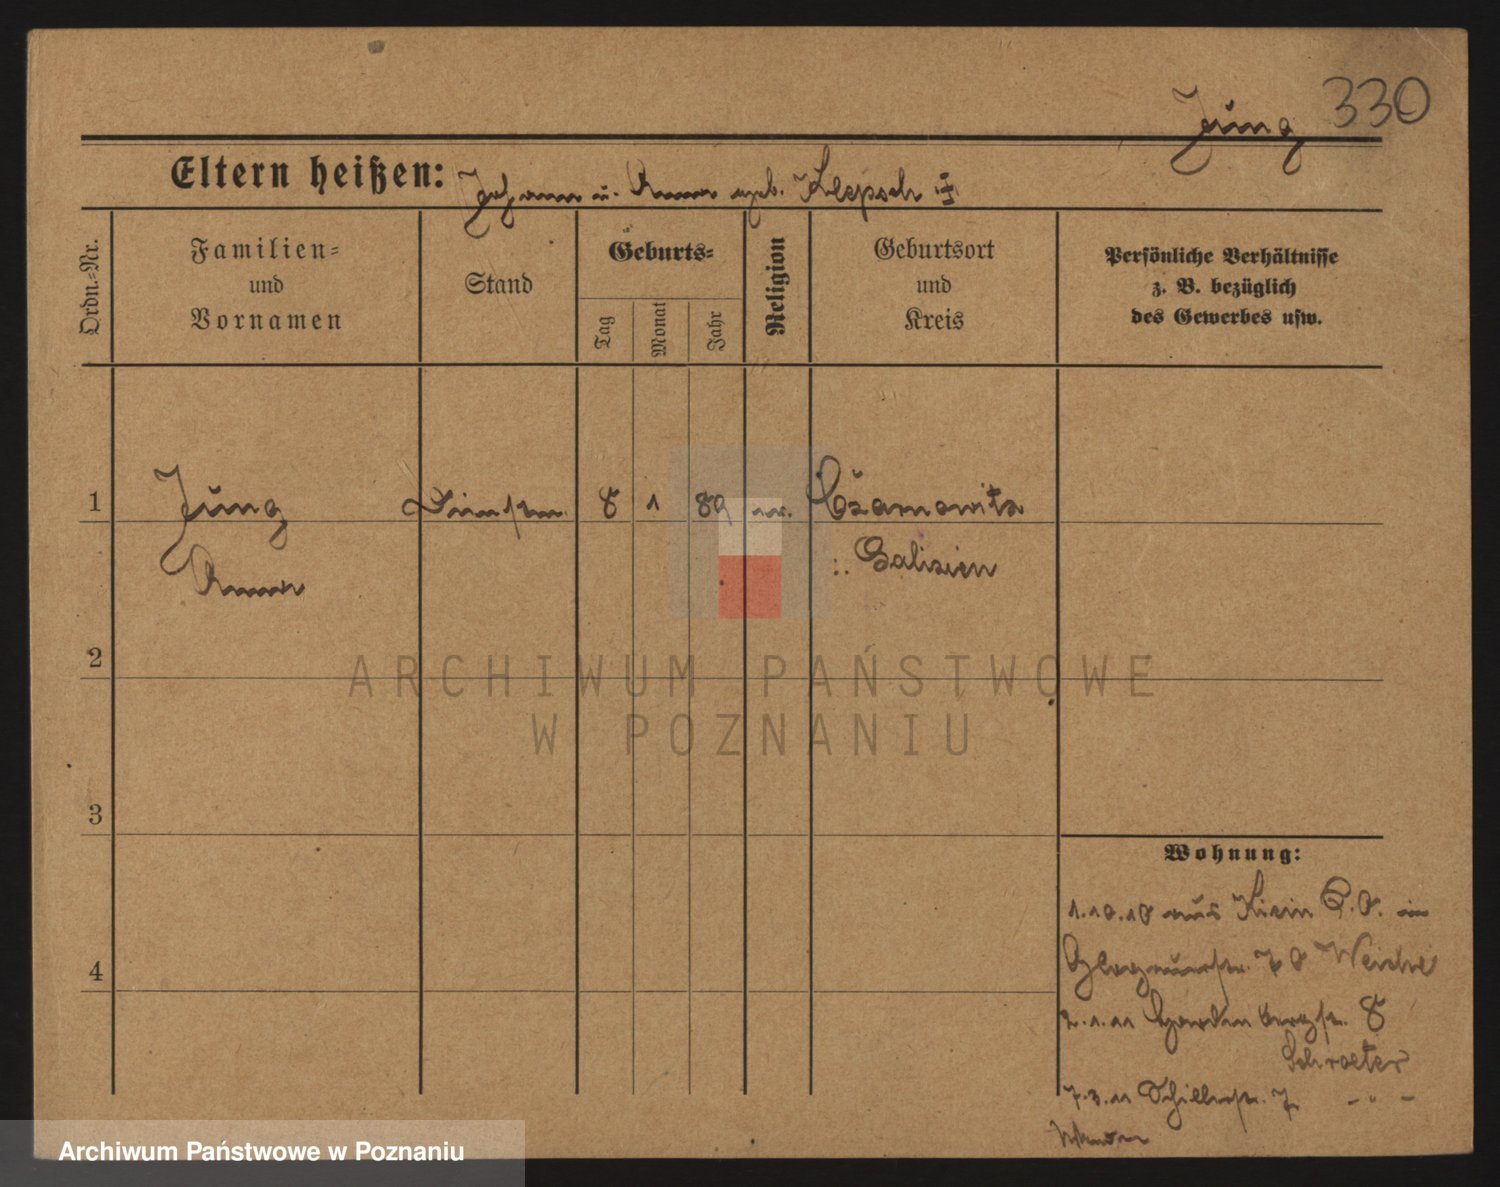 Jung 330
Eltern heißen: Johann u. Anna geb. Klepsch
Ordn.-Nr.
Familien-
und
Vornamen
Stand
Geburts-
Tag
Monat
Jahr
Religion
Geburtsort
und
Kreis
Persönliche Verhältnisse
z. B. bezüglich
des Gewerbes usw.
1 Jung 8 1 89
Anna Galizien
2
3
4
Wohnung:
1.10.10 aus
2.1.11 8
Schroeter
7.3.11 Schillerstr. 7 - " -
ARCHIWUM PAŃSTWOWE
W POZNANIU
Archiwum Państwowe w Poznaniu